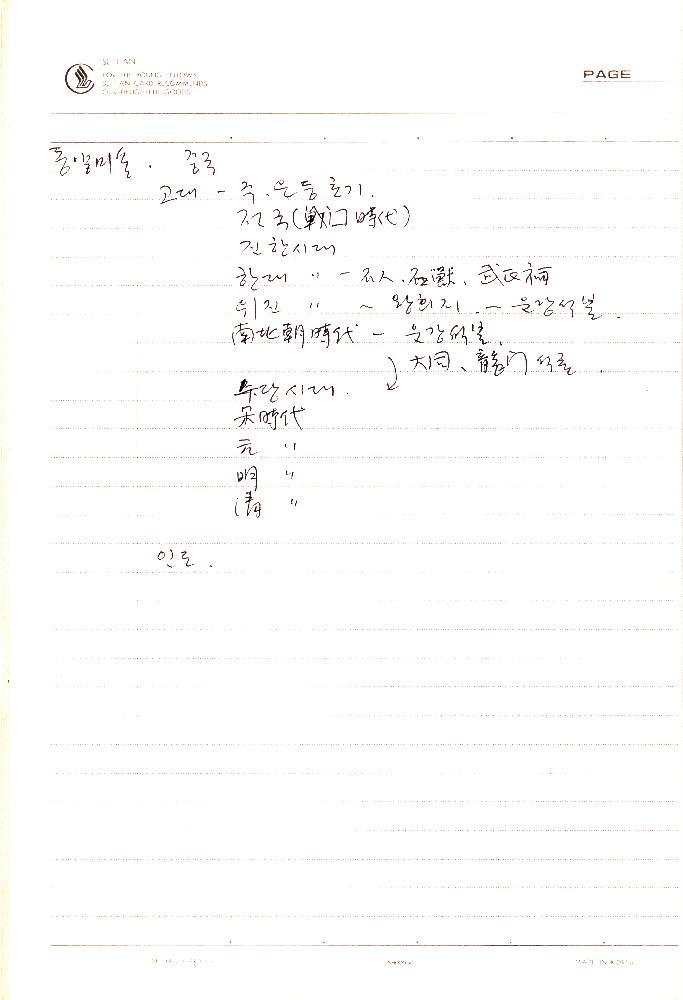 FOR THE YOUNG FELLOWS
CARD RECOMMENDS
PAGE
동양미술. 중국
고대 - 주.은 동호기.
전국(戰囗時代)
진한시대
한대 〃 - 石人.石獸.武氏祠
위진 〃 ~ 왕희지. ~ 운강석불.
南北朝時代 - 운강석불.
大同、龍门석굴.
수당시대.
宋時代
元 〃
明 〃
淸 〃
인도.
MADE IN KOREA